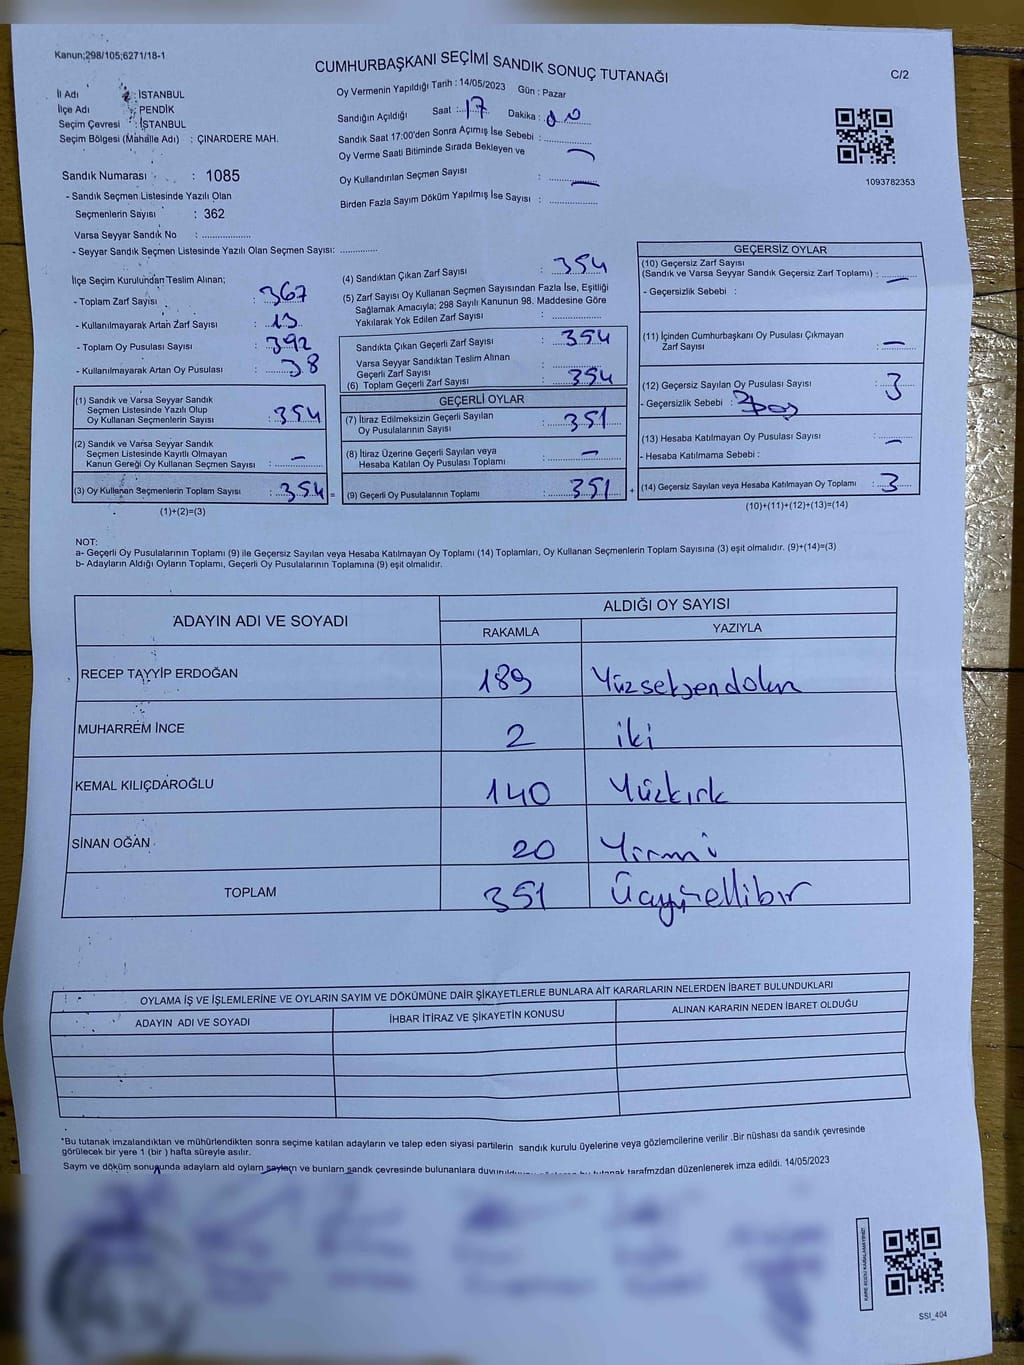 Kanun;298/105;6271/18-1
CUMHURBAŞKANI SEÇİMİ SANDIK SONUÇ TUTANAĞI
C/2
İl Adı : İSTANBUL
İlçe Adı : PENDİK
Seçim Çevresi : İSTANBUL
Seçim Bölgesi (Mahalle Adı) : ÇINARDERE MAH.
Sandık Numarası : 1085
- Sandık Seçmen Listesinde Yazılı Olan
Seçmenlerin Sayısı : 362
Varsa Seyyar Sandık No :
- Seyyar Sandık Seçmen Listesinde Yazılı Olan Seçmen Sayısı:
Oy Vermenin Yapıldığı Tarih : 14/05/2023 Gün : Pazar
Sandığın Açıldığı Saat : 17 Dakika : 00
Sandık Saat 17:00'den Sonra Açımış İse Sebebi :
Oy Verme Saati Bitiminde Sırada Bekleyen ve
Oy Kullandırılan Seçmen Sayısı : —
Birden Fazla Sayım Döküm Yapılmış İse Sayısı : —
1093782353
İlçe Seçim Kurulundan Teslim Alınan;
- Toplam Zarf Sayısı : 367
- Kullanılmayarak Artan Zarf Sayısı : 13
- Toplam Oy Pusulası Sayısı : 392
- Kullanılmayarak Artan Oy Pusulası : 38
(1) Sandık ve Varsa Seyyar Sandık
Seçmen Listesinde Yazılı Olup
Oy Kullanan Seçmenlerin Sayısı : 354
(2) Sandık ve Varsa Seyyar Sandık
Seçmen Listesinde Kayıtlı Olmayan
Kanun Gereği Oy Kullanan Seçmen Sayısı : —
(3) Oy Kullanan Seçmenlerin Toplam Sayısı : 354 =
(1)+(2)=(3)
(4) Sandıktan Çıkan Zarf Sayısı : 354
(5) Zarf Sayısı Oy Kullanan Seçmen Sayısından Fazla İse, Eşitliği
Sağlamak Amacıyla; 298 Sayılı Kanunun 98. Maddesine Göre
Yakılarak Yok Edilen Zarf Sayısı :
Sandıkta Çıkan Geçerli Zarf Sayısı : 354
Varsa Seyyar Sandıktan Teslim Alınan
Geçerli Zarf Sayısı :
(6) Toplam Geçerli Zarf Sayısı : 354
GEÇERLİ OYLAR
(7) İtiraz Edilmeksizin Geçerli Sayılan
Oy Pusulalarının Sayısı : 351
(8) İtiraz Üzerine Geçerli Sayılan veya
Hesaba Katılan Oy Pusulası Toplamı : —
(9) Geçerli Oy Pusulalarının Toplamı : 351 +
GEÇERSİZ OYLAR
(10) Geçersiz Zarf Sayısı
(Sandık ve Varsa Seyyar Sandık Geçersiz Zarf Toplamı) : —
- Geçersizlik Sebebi :
(11) İçinden Cumhurbaşkanı Oy Pusulası Çıkmayan
Zarf Sayısı : —
(12) Geçersiz Sayılan Oy Pusulası Sayısı : 3
- Geçersizlik Sebebi :
(13) Hesaba Katılmayan Oy Pusulası Sayısı : —
- Hesaba Katılmama Sebebi :
(14) Geçersiz Sayılan veya Hesaba Katılmayan Oy Toplamı : 3
(10)+(11)+(12)+(13)=(14)
NOT:
a- Geçerli Oy Pusulalarının Toplamı (9) ile Geçersiz Sayılan veya Hesaba Katılmayan Oy Toplamı (14) Toplamları, Oy Kullanan Seçmenlerin Toplam Sayısına (3) eşit olmalıdır. (9)+(14)=(3)
b- Adayların Aldığı Oyların Toplamı, Geçerli Oy Pusulalarının Toplamına (9) eşit olmalıdır.
ADAYIN ADI VE SOYADI
ALDIĞI OY SAYISI
RAKAMLA YAZIYLA
RECEP TAYYİP ERDOĞAN 189
MUHARREM İNCE 2 iki
KEMAL KILIÇDAROĞLU 140 Yüzkırk
SİNAN OĞAN 20 Yirmi
TOPLAM 351 Üçyüzellibir
OYLAMA İŞ VE İŞLEMLERİNE VE OYLARIN SAYIM VE DÖKÜMÜNE DAİR ŞİKAYETLERLE BUNLARA AİT KARARLARIN NELERDEN İBARET BULUNDUKLARI
ADAYIN ADI VE SOYADI İHBAR İTİRAZ VE ŞİKAYETİN KONUSU ALINAN KARARIN NEDEN İBARET OLDUĞU
*Bu tutanak imzalandıktan ve mühürlendikten sonra seçime katılan adayların ve talep eden siyasi partilerin sandık kurulu üyelerine veya gözlemcilerine verilir .Bir nüshası da sandık çevresinde
görülecek bir yere 1 (bir ) hafta süreyle asılır.
Sayım ve döküm sonucunda adayların ald oyların ve bunların sandk çevresinde bulunanlara tarafmzdan düzenlenerek imza edildi. 14/05/2023
KARE KODU KARALAMAYINIZ!
SSI_404